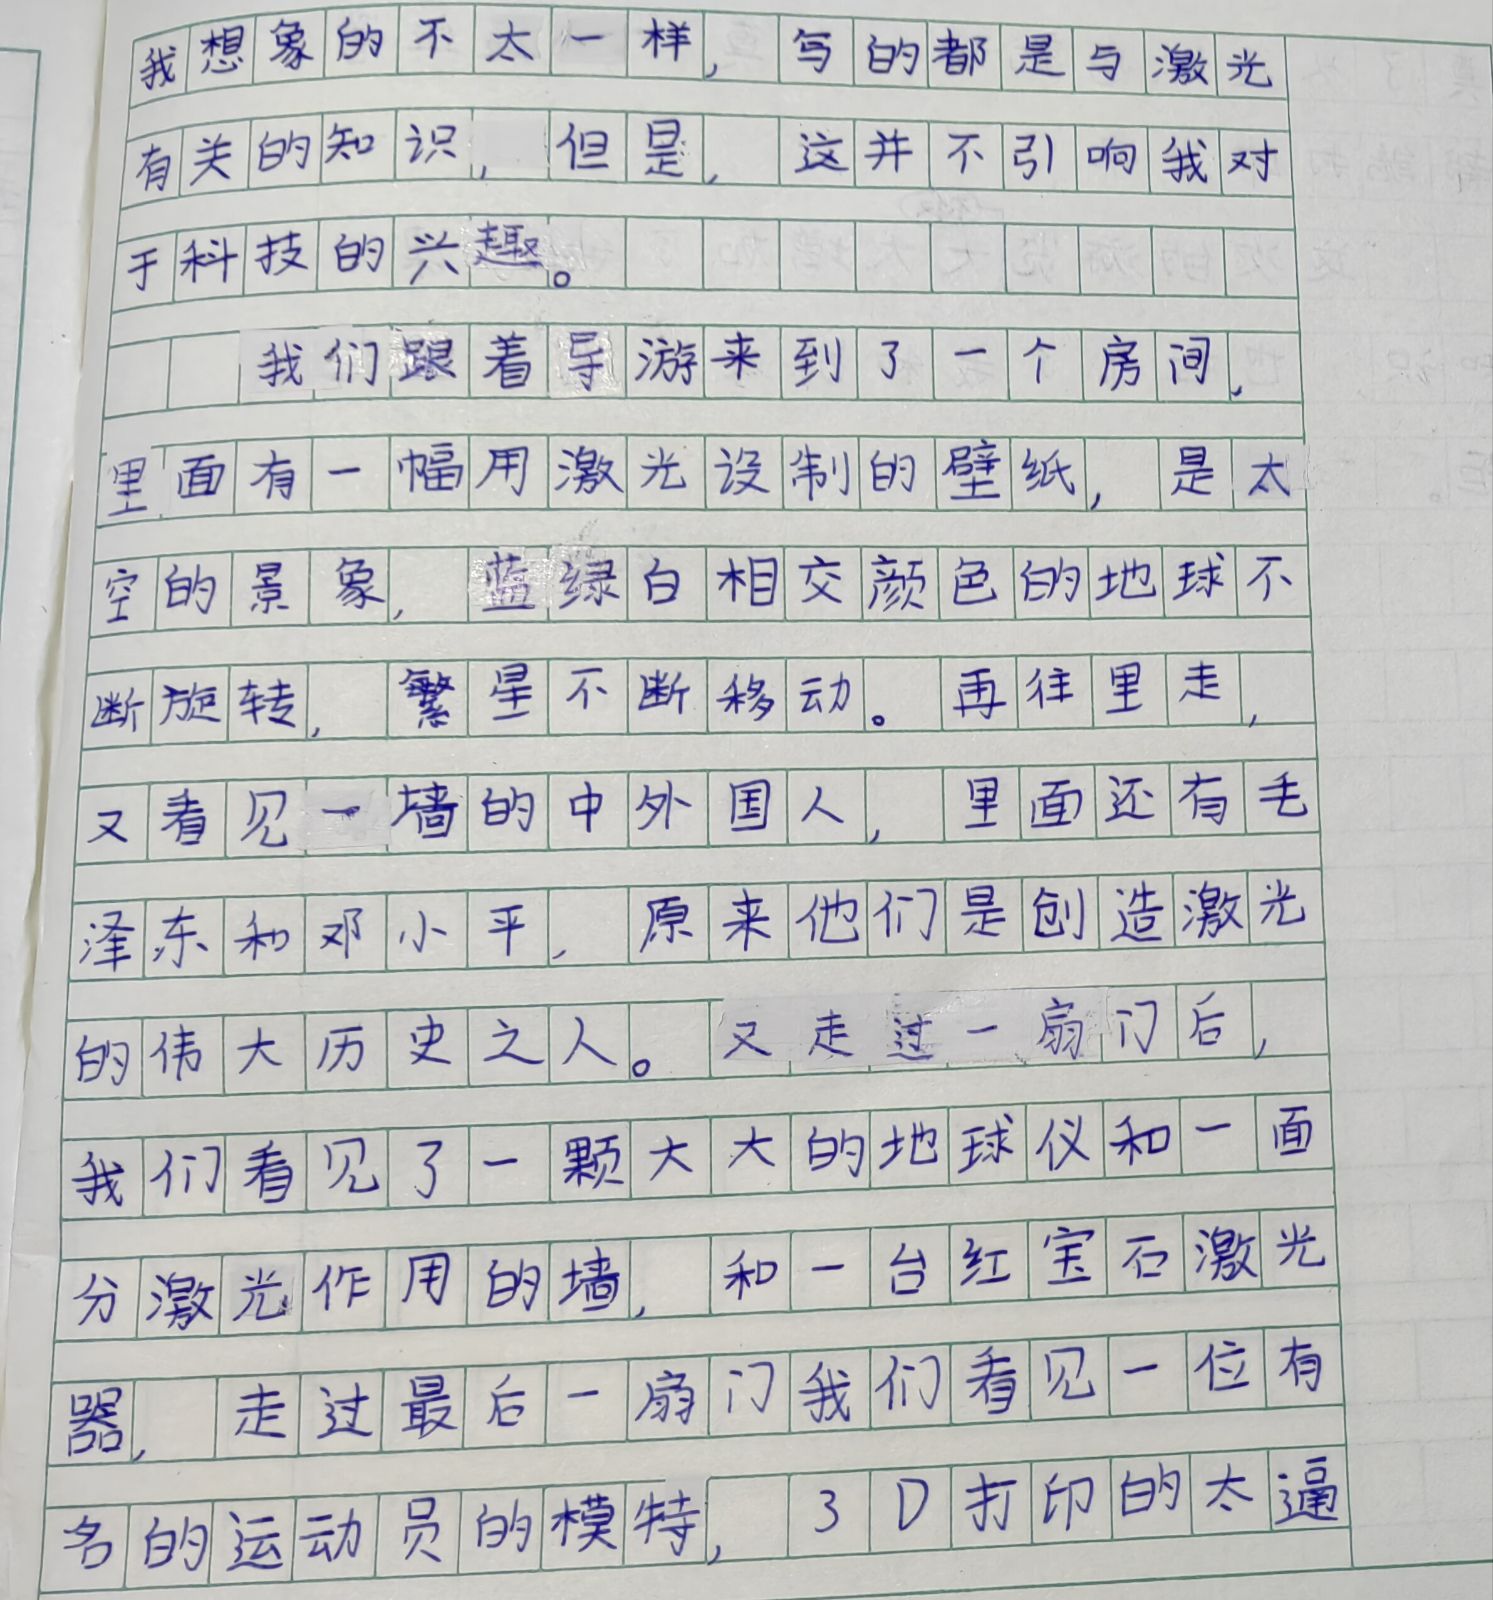 我想象的不太一样，写的都是与激光
有关的知识，但是，这并不引响我对
于科技的兴趣。
我们跟着导游来到了一个房间，
里面有一幅用激光设制的壁纸，是太
空的景象，蓝绿白相交颜色的地球不
断旋转，繁星不断移动。再往里走，
又看见一墙的中外国人，里面还有毛
泽东和邓小平，原来他们是创造激光
的伟大历史之人。又走过一扇门后，
我们看见了一颗大大的地球仪和一面
分激光作用的墙，和一台红宝石激光
器，走过最后一扇门我们看见一位有
名的运动员的模特，3D打印的太逼